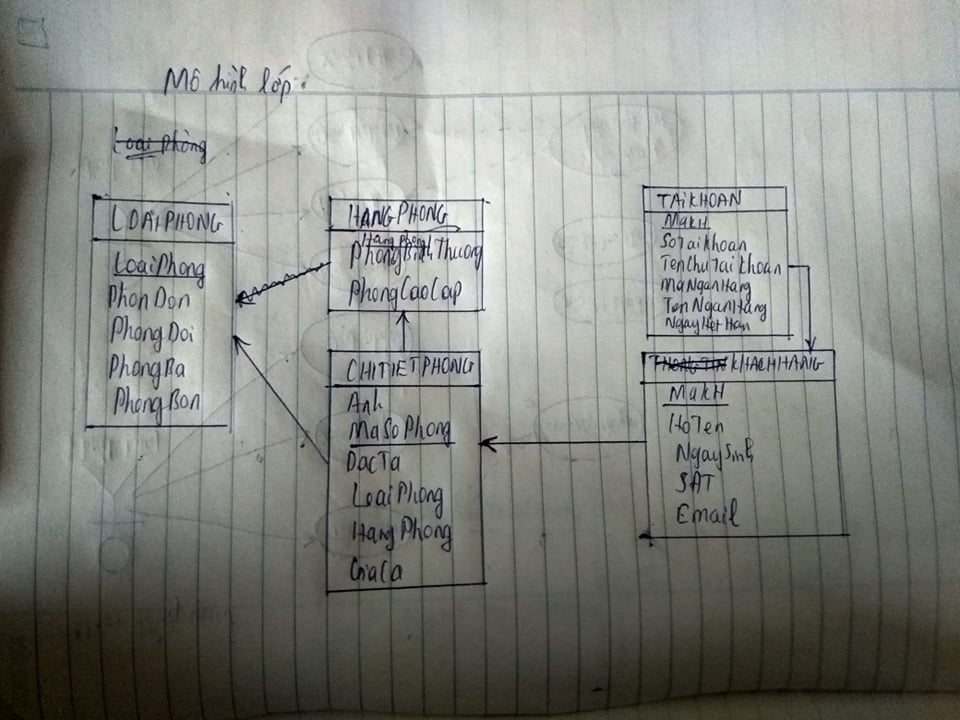 Mô hình lớp:
Loại phòng
LOAIPHONG
LoaiPhong
PhonDon
PhongDoi
PhongBa
PhongBon
HANGPHONG
Hang Phong
PhongBinhThuong
PhongCaoCap
CHITIETPHONG
Anh
MaSoPhong
DacTa
LoaiPhong
HangPhong
GiaCa
TAIKHOAN
MaKH
SoTaiKhoan
TenChuTaiKhoan
MaNganHang
TenNganHang
NgayHetHan
THONG TIN KHACHHANG
MaKH
HoTen
NgaySinh
SĐT
Email